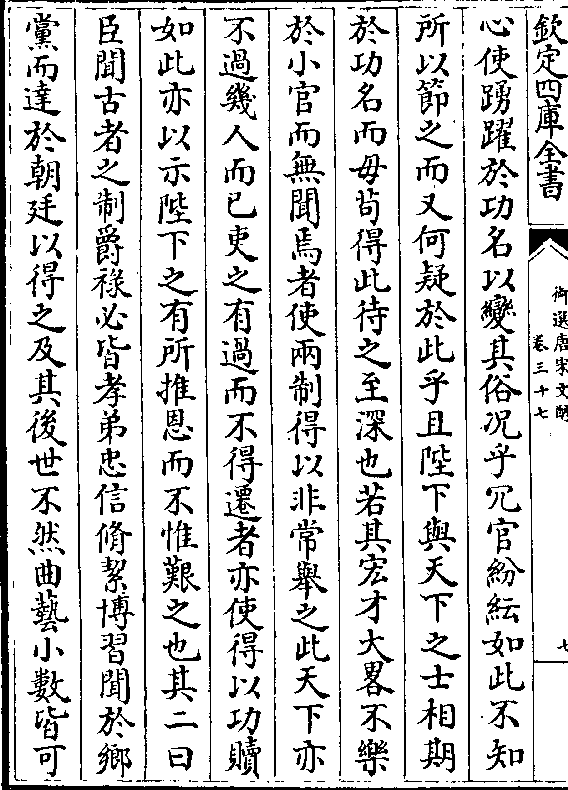 欽定四庫全書
御選唐宋文醇
卷三十七
七
心使踴躍於功名以變其俗况乎冗官紛紜如此不知
所以節之而又何疑於此乎且陛下與天下之士相期
於功名而毋苟得此待之至深也若其宏才大畧不樂
於小官而無聞焉者使兩制得以非常舉之此天下亦
不過幾人而已吏之有過而不得遷者亦使得以功贖
如此亦以示陛下之有所推恩而不惟艱之也其二曰
臣聞古者之制爵祿必皆孝弟忠信脩絜博習聞於鄉
黨而達於朝廷以得之及其後世不然曲藝小數皆可